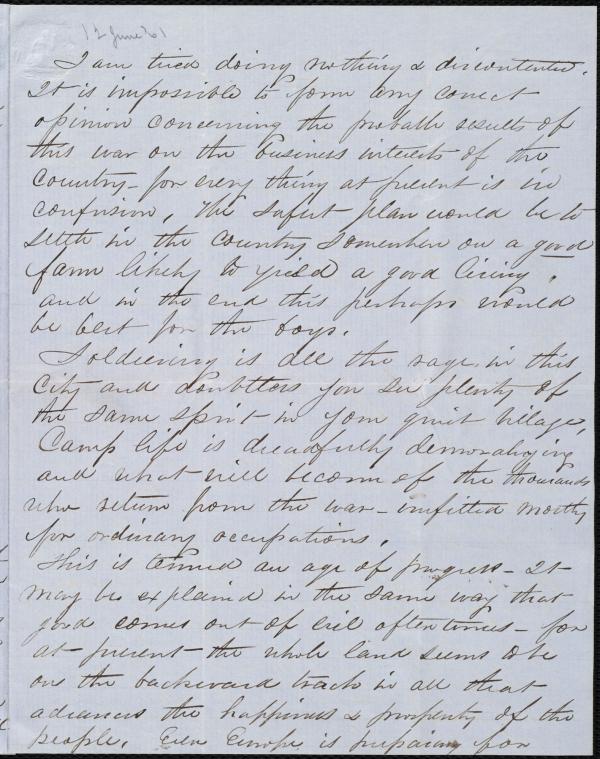 12 June 61
I am tired doing nothing & discontented.
It is impossible to form any correct
opinion concerning the probable results of
this war on the business interests of the
Country - for every thing at present is in
confusion. The safest plan would be to
settle in the country somewhere on a good
farm likely to yield a good living,
and in the end this perhaps would
be best for the boys.
Soldiering is all the rage in this
City and doubtless you see plenty of
the same spirit in your quiet village.
Camp life is dreadfully demoralizing
and what will become of the thousands
who return from the war - unfitted mostly
for ordinary occupations.
This is termed an age of progress - It
may be explained in the same way that
good comes out of evil oftentimes - for
at present the whole land seems to be
on the backward track in all that
advances the happiness & prosperity of the
people. Even Europe is preparing for